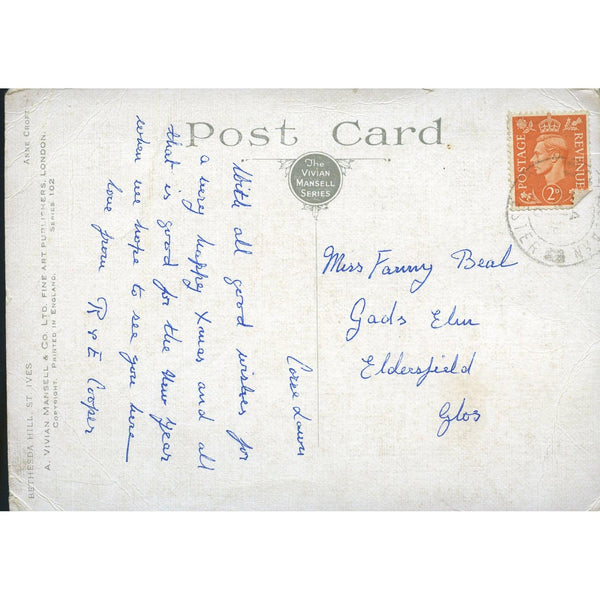 Post Card
The
VIVIAN
MANSELL
SERIES
POSTAGE
REVENUE
2D
Miss Fanny Beal
Gads Elm
Eldersfield
Glos
Corse Lawn
With all good wishes for
a very happy Xmas and all
that is good for the New Year
when we hope to see you here—
love from R & E Cooper
ANNE CROFT
A. VIVIAN MANSELL & CO. LTD. FINE ART PUBLISHERS, LONDON.
COPYRIGHT. PRINTED IN ENGLAND. SERIES 102
BETHESDA HILL, ST. IVES